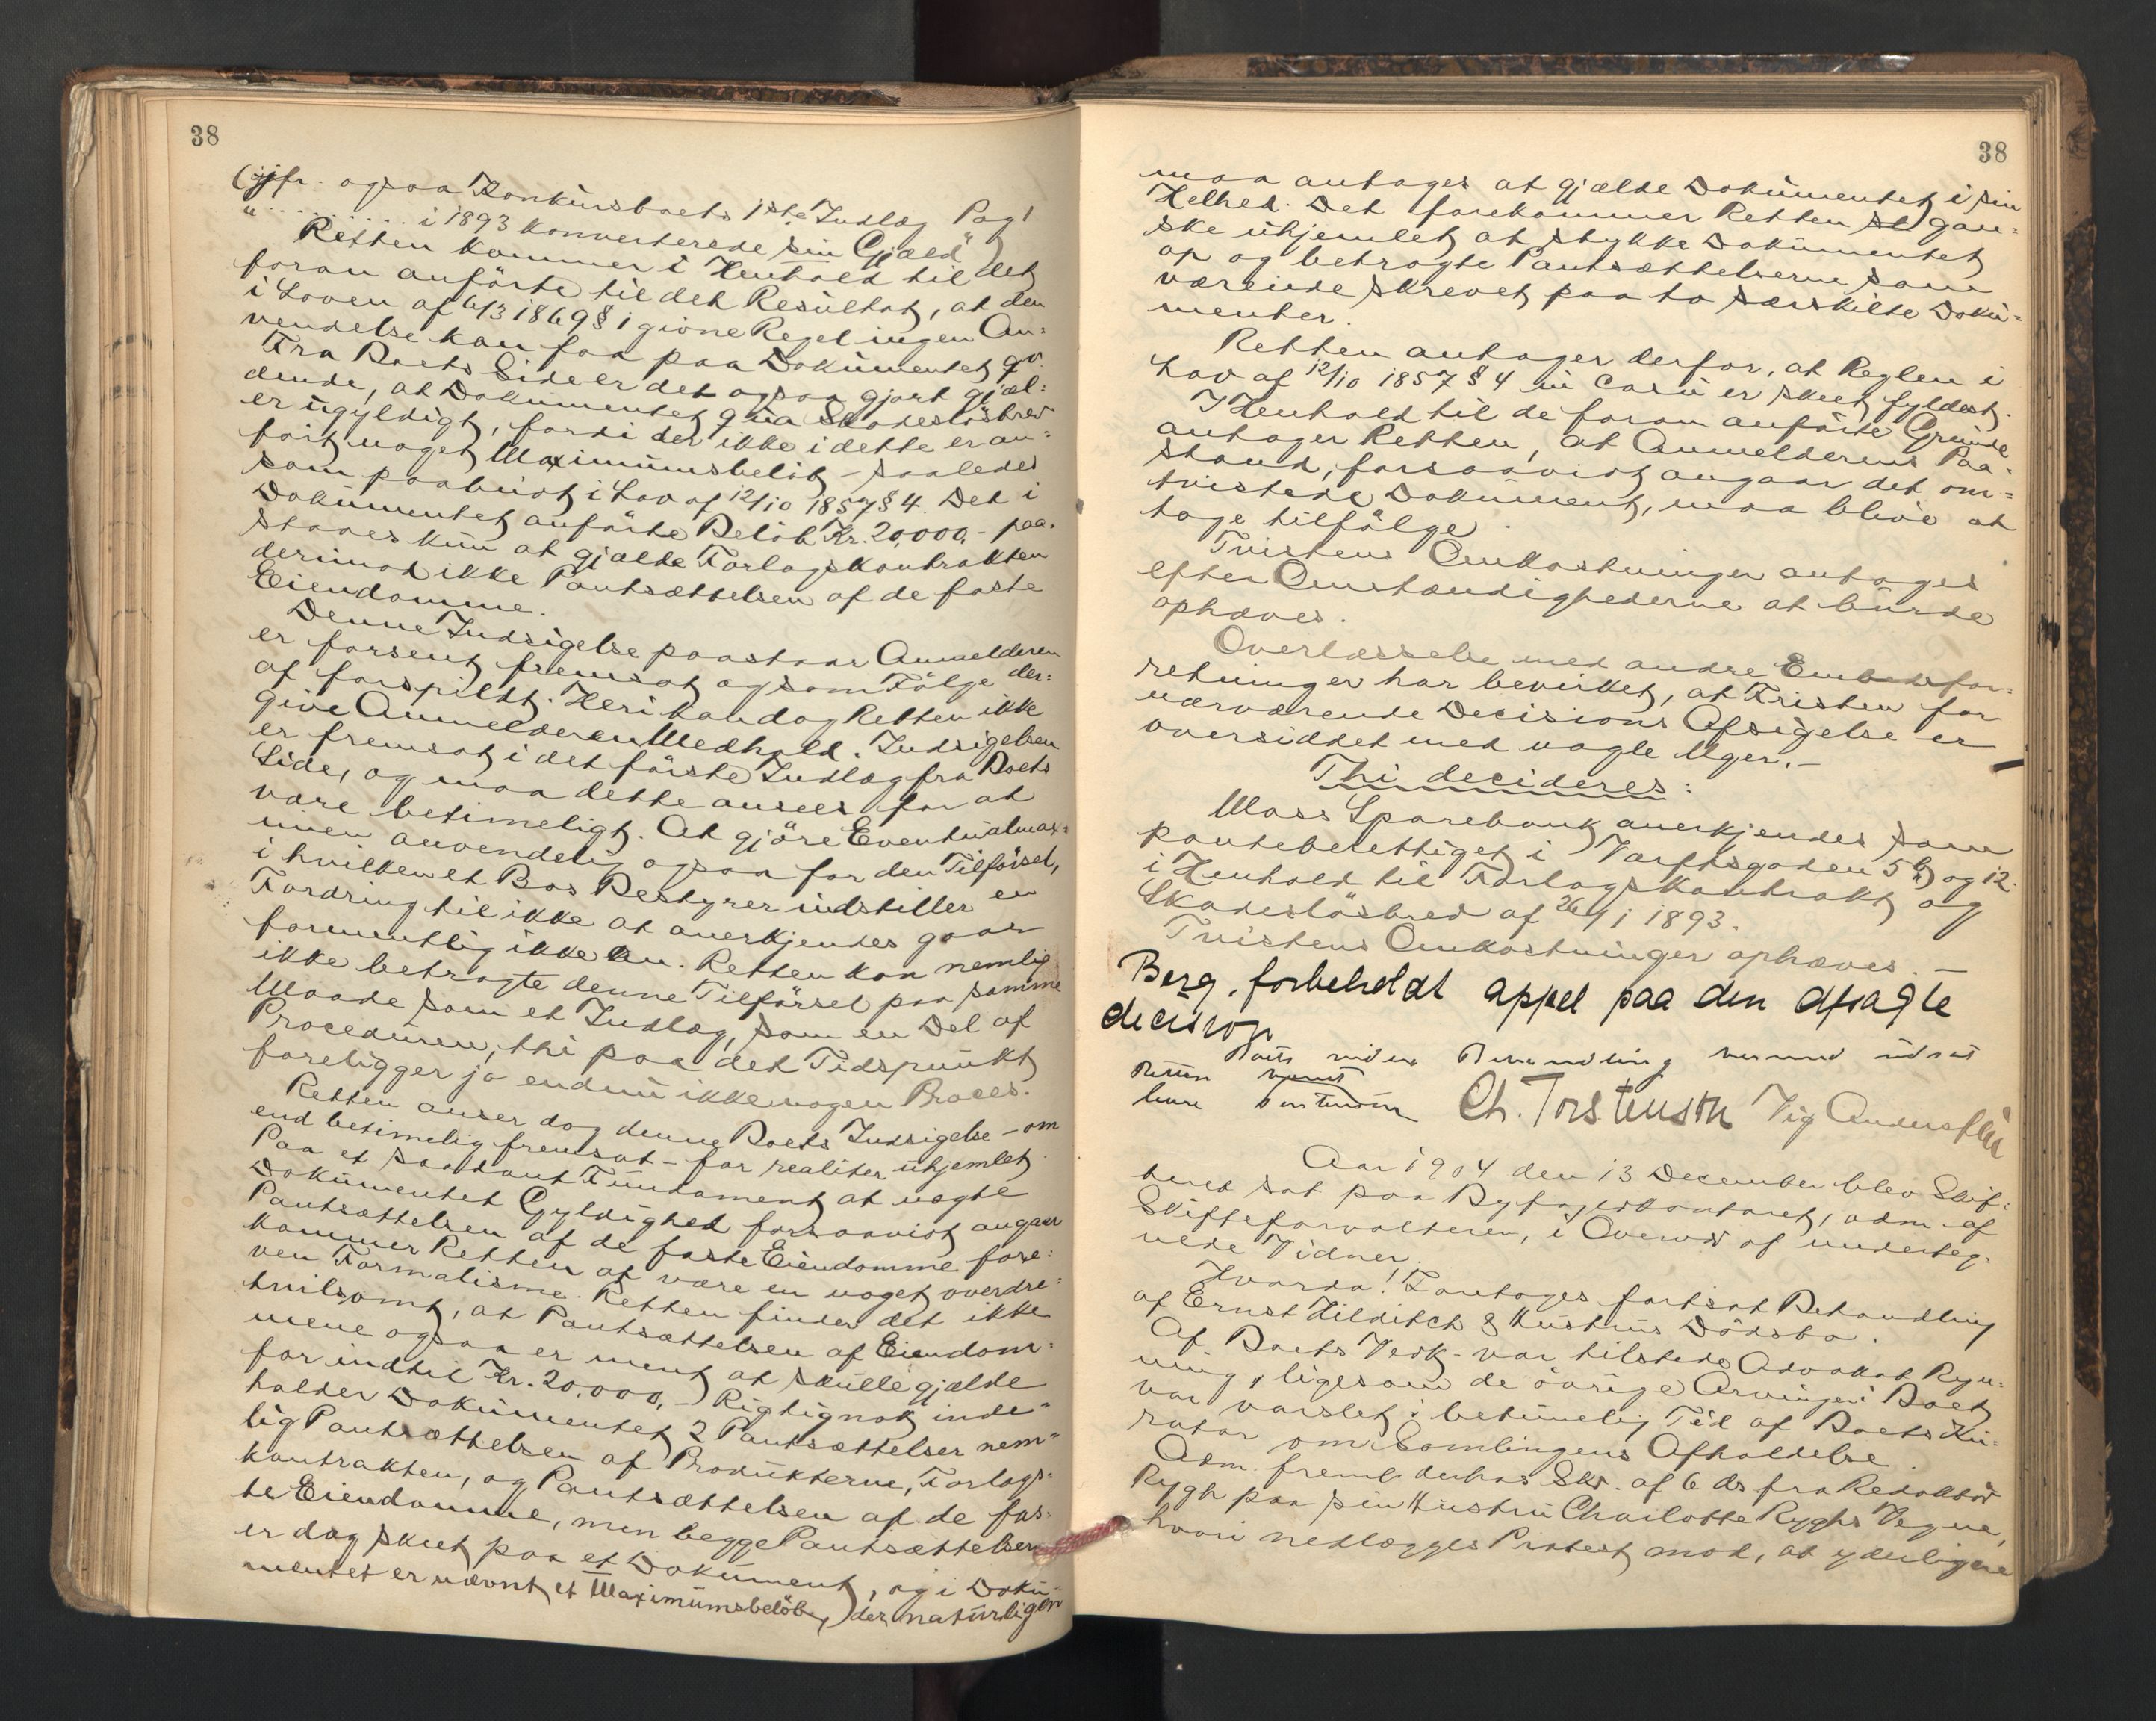 38
(jfr. ogsaa Konkursboets 1ste Indlæg Pag 1
"......... i 1893 konverterede sin Gjæld"
Retten kommer i Henhold til det
foran anførte til det Resultat, at den
i Loven af 6/3 1869 § 1 givne Regel ingen An=
vendelse kan faa paa Dokumentet qv.
Fra Boets Side er det ogsaa gjort gjæl=
dende, at Dokumentet qua Skadesløsbrev
er ugyldigt, fordi der ikke i dette er an=
ført noget Maximumsbeløb – saaledes
som paabudt i Lov af 12/10 1857 § 4. Det i
Dokumentet anførte Beløb Kr. 20,000,- paa=
staaes kun at gjælde Forlagskontrakten
derimod ikke Pantsættelsen af de faste
Eiendomme.
Denne Indsigelse paastaar Anmelderen
er forsent fremsat og som Følge der=
af forspildt. Heri kan dog Retten ikke
give Anmelderen Medhold. Indsigelsen
er fremsat i det første Indlæg fra Boets
Side, og maa dette ansees for at
være betimeligt. At gjøre Eventualmax=
imen anvendelig ogsaa for den Tilførsel,
i hvilken et Bos Bestyrer indstiller en
Fordring til ikke at anerkjendes gaar
formentlig ikke an. Retten kan nemlig
ikke betragte denne Tilførsel paa samme
Maade som et Indlæg, som en Del af
Proceduren, thi paa det Tidspunkt
foreligger jo endnu ikke nogen Proces.
Retten anser dog denne Boets Indsigelse – om
end betimelig fremsat – for realiter uhjemlet.
Paa et saadant Fundament at nægte
Dokumentet Gyldighed forsaavidt angaar
Pantsættelsen af de faste Eiendomme fore=
kommer Retten at være en noget overdre=
ven Formalisme. Retten finder det ikke
tvilsomt, at Pantsættelsen af Eiendom=
mene ogsaa er ment at skulle gjælde
for indtil Kr. 20.000,- Rigtignok inde=
holder Dokumentet 2 Pantsættelser nem=
lig Pantsættelsen af Produkterne, Forlags=
kontrakten, og Pantsættelsen af de fas=
te Eiendomme, men begge Pantsættelser
er dog skeet paa et Dokument, og i Doku=
mentet er nævnt et Maximumsbeløb, der naturligen
38
maa antages at gjælde Dokumentet i sin
Helhed. Det forekommer Retten gan=
ske uhjemlet at stykke Dokumentet
op og betragte Pantsættelserne som
værende skrevet paa to særskilte Doku=
menter.
Retten antager derfor, at Reglen i
Lov af 12/10 1857 § 4 in casu er skeet fyldest.
I Henhold til de foran anførte Grunde
antager Retten, at Anmelderens Paa=
stand, forsaavidt angaar det om=
tvistede Dokument, maa blive at
tage tilfølge.
Tvistens Omkostninger antages
efter Omstændighederne at burde
ophæves.
Overlæsselse med andre Embedsfor=
retninger har bevirket, at Fristen for
nærværende Decisions Afsigelse er
oversiddet med nogle Uger. –
Thi decideres:
Moss Sparebank anerkjendes som
panteberettiget i Værftsgaden 5 b) og 12
i Henhold til Forlagskontrakt og
Skadesløsbrev af 26/1 1893.
Tvistens Omkostninger ophæves. –
Berg. forbeholdt appel paa den afsagte
decision
Boets videre Behandling udsat
Retten
Ch. Torstenson Vig Andersen
Aar 1904 den 13 December blev Skif=
teret sat paa Byfogedkontoret, adm. af
Skifteforvalteren, i Overvær af underteg=
nede Vidner.
Hvorda! Foretages fortsat Behandling
af Ernst Hilditch & Hustrus Dødsbo.
Af Boets Vedk. var tilstede Advokat Ryn=
ning, ligesom de øvrige Arvinger i Boet
var varslet i betimelig Tid af Boets Ku=
rator om Samlingens Afholdelse.
Adm. freml. derhos Skr. af 6 ds fra Redaktør
Rygh paa sin Hustru Charlotte Ryghs Vegne,
hvori nedlægges Protest mod, at yderligere